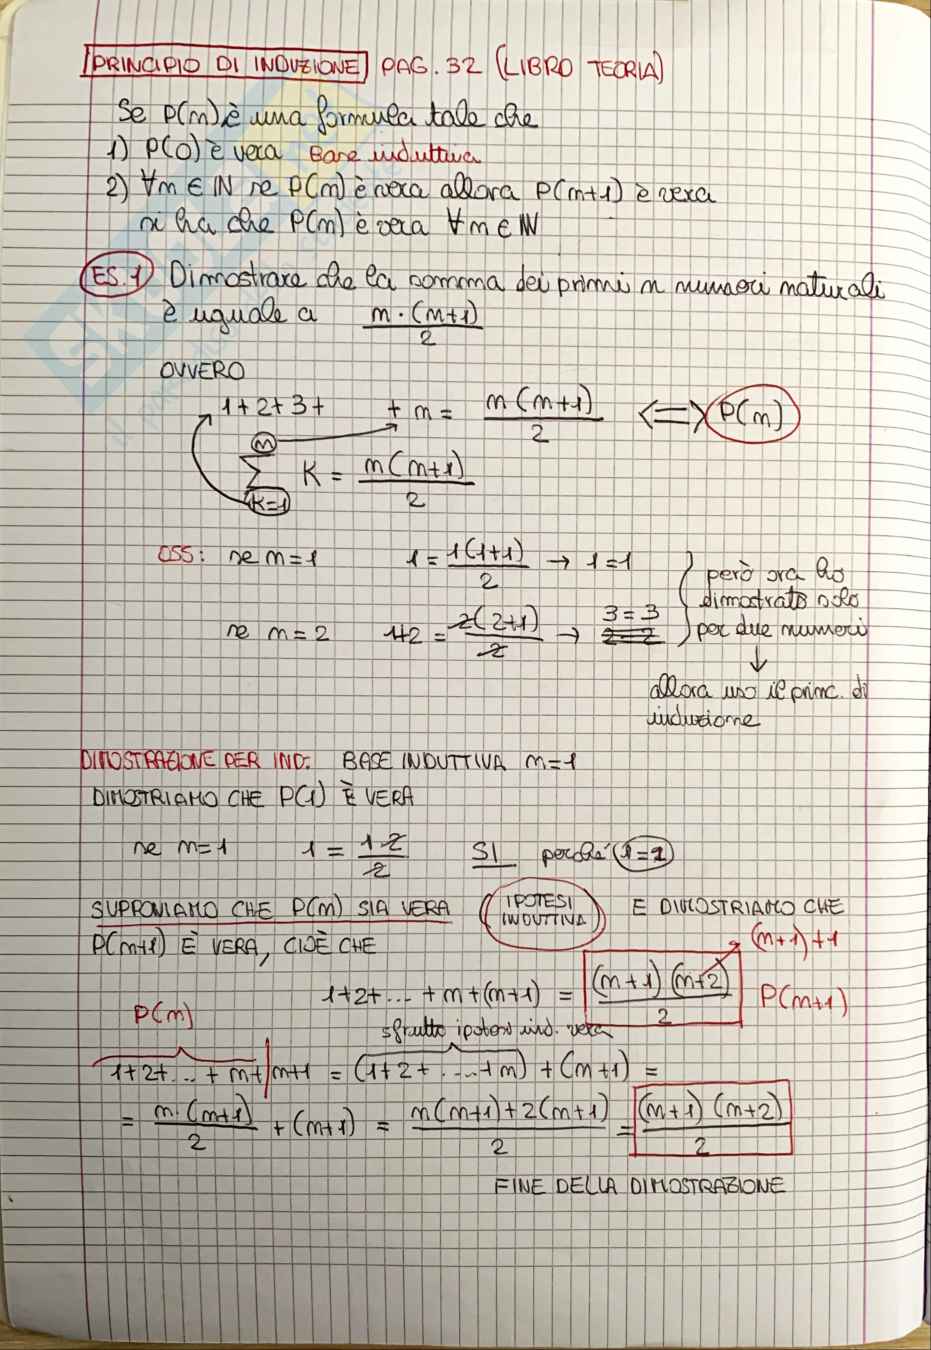 PRINCIPIO DI INDUZIONE PAG. 32 (LIBRO TEORIA)
Se P(n) è una formula tale che
1) P(0) è vera Base induttiva
2) ∀n ∈ ℕ se P(n) è vera allora P(n+1) è vera
si ha che P(n) è vera ∀n ∈ ℕ
ES.1 Dimostrare che la somma dei primi n numeri naturali
è uguale a n·(n+1)/2
OVVERO
1+2+3+ +n = n(n+1)/2 <=> P(n)
n
∑ K = n(n+1)/2
K=1
OSS: se n=1 1 = 1(1+1)/2 → 1=1
se n=2 1+2 = 2(2+1)/2 → 3=3
2=2
però ora ho
dimostrato solo
per due numeri
↓
allora uso il princ. di
induzione
DIMOSTRAZIONE PER IND: BASE INDUTTIVA n=1
DIMOSTRIAMO CHE P(1) È VERA
se n=1 1 = 1·2/2 SI perché 1=1
SUPPONIAMO CHE P(n) SIA VERA (IPOTESI INDUTTIVA) E DIMOSTRIAMO CHE
P(n+1) È VERA, CIOÈ CHE (n+1)+1
1+2+...+n+(n+1) = (n+1)(n+2)/2 P(n+1)
P(n) sfrutto ipotesi ind. vera
1+2+...+n+|n+1 = (1+2+...+n)+(n+1) =
= n·(n+1)/2 + (n+1) = n(n+1)+2(n+1)/2 = (n+1)(n+2)/2
FINE DELLA DIMOSTRAZIONE